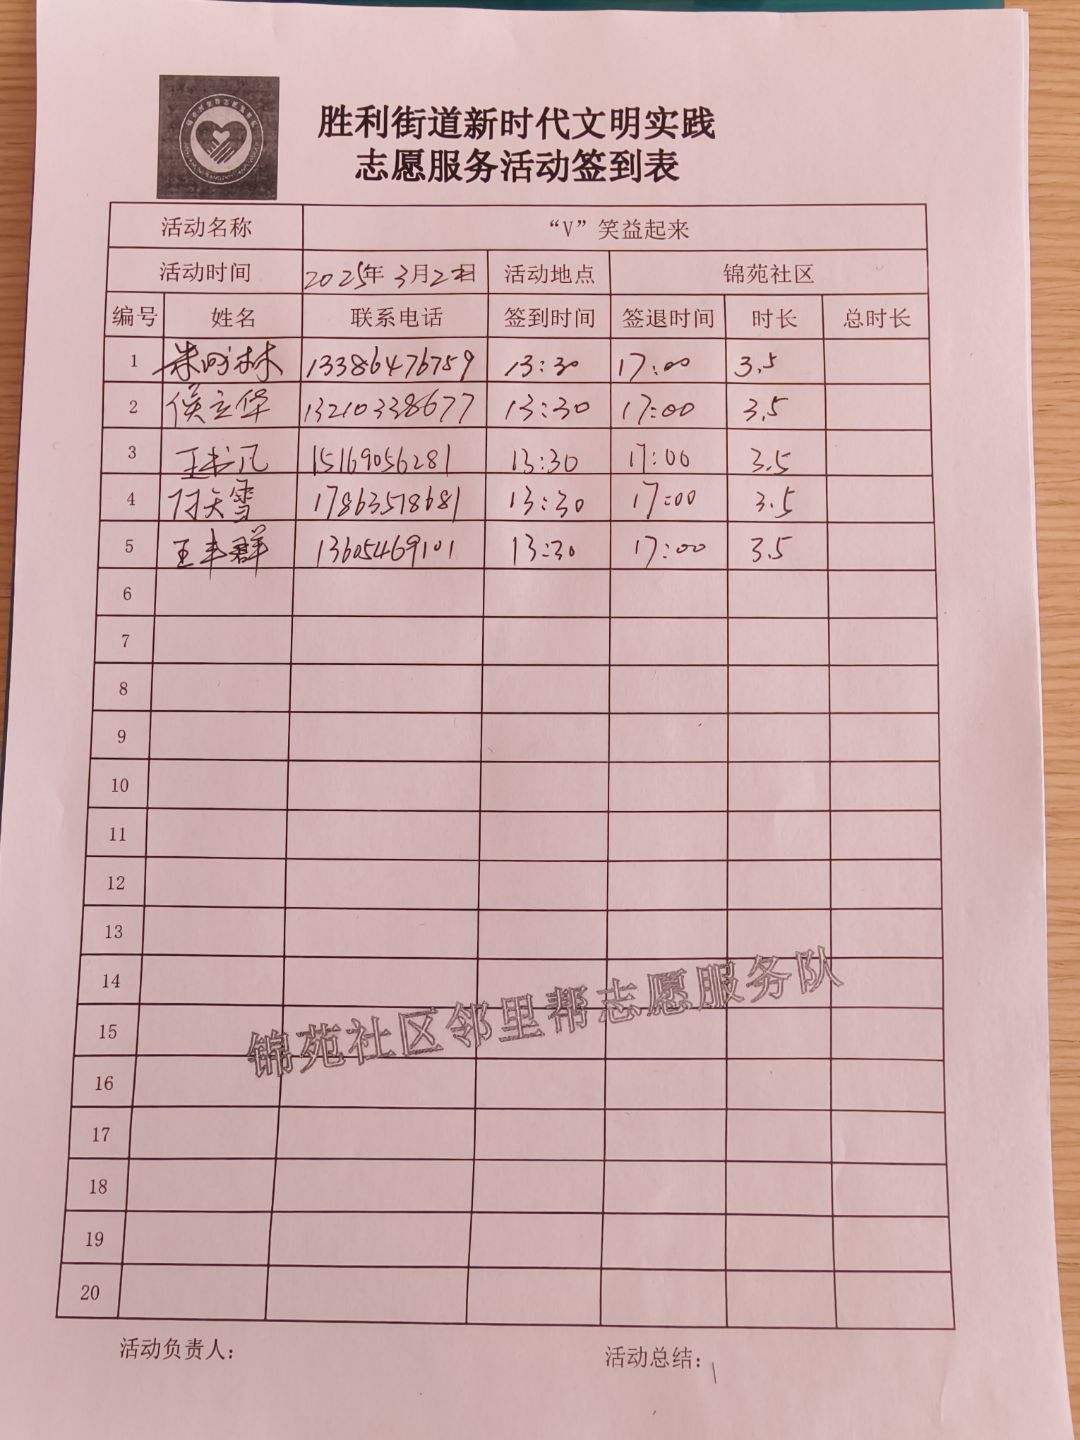 胜利街道新时代文明实践
志愿服务活动签到表
活动名称 “V”笑益起来
活动时间 2025年3月2日 活动地点 锦苑社区
编号 姓名 联系电话 签到时间 签退时间 时长 总时长
1 13386476759 13:30 17:00 3.5
2 侯立华 13210338677 13:30 17:00 3.5
3 15169056281 13:30 17:00 3.5
4 付天雪 17863518681 13:30 17:00 3.5
5 王丰群 13605469101 13:30 17:00 3.5
6
7
8
9
10
11
12
13
14
锦苑社区邻里帮志愿服务队
15
16
17
18
19
20
活动负责人： 活动总结：